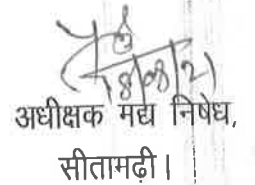 18/08/21
अधीक्षक मद्य निषेध,
सीतामढ़ी।